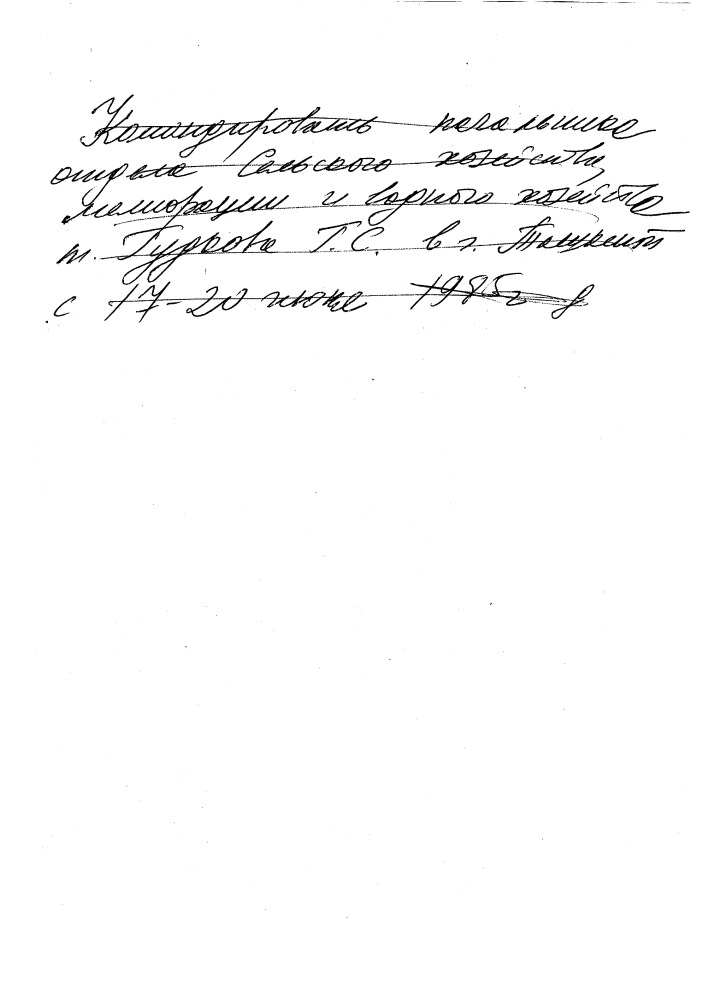 Командировать начальника
отдела Сельского хозяйства,
мелиорации и водного хозяйства
т. Гурова Г.С. в г. Ташкент
с 17-20 июня 1985г